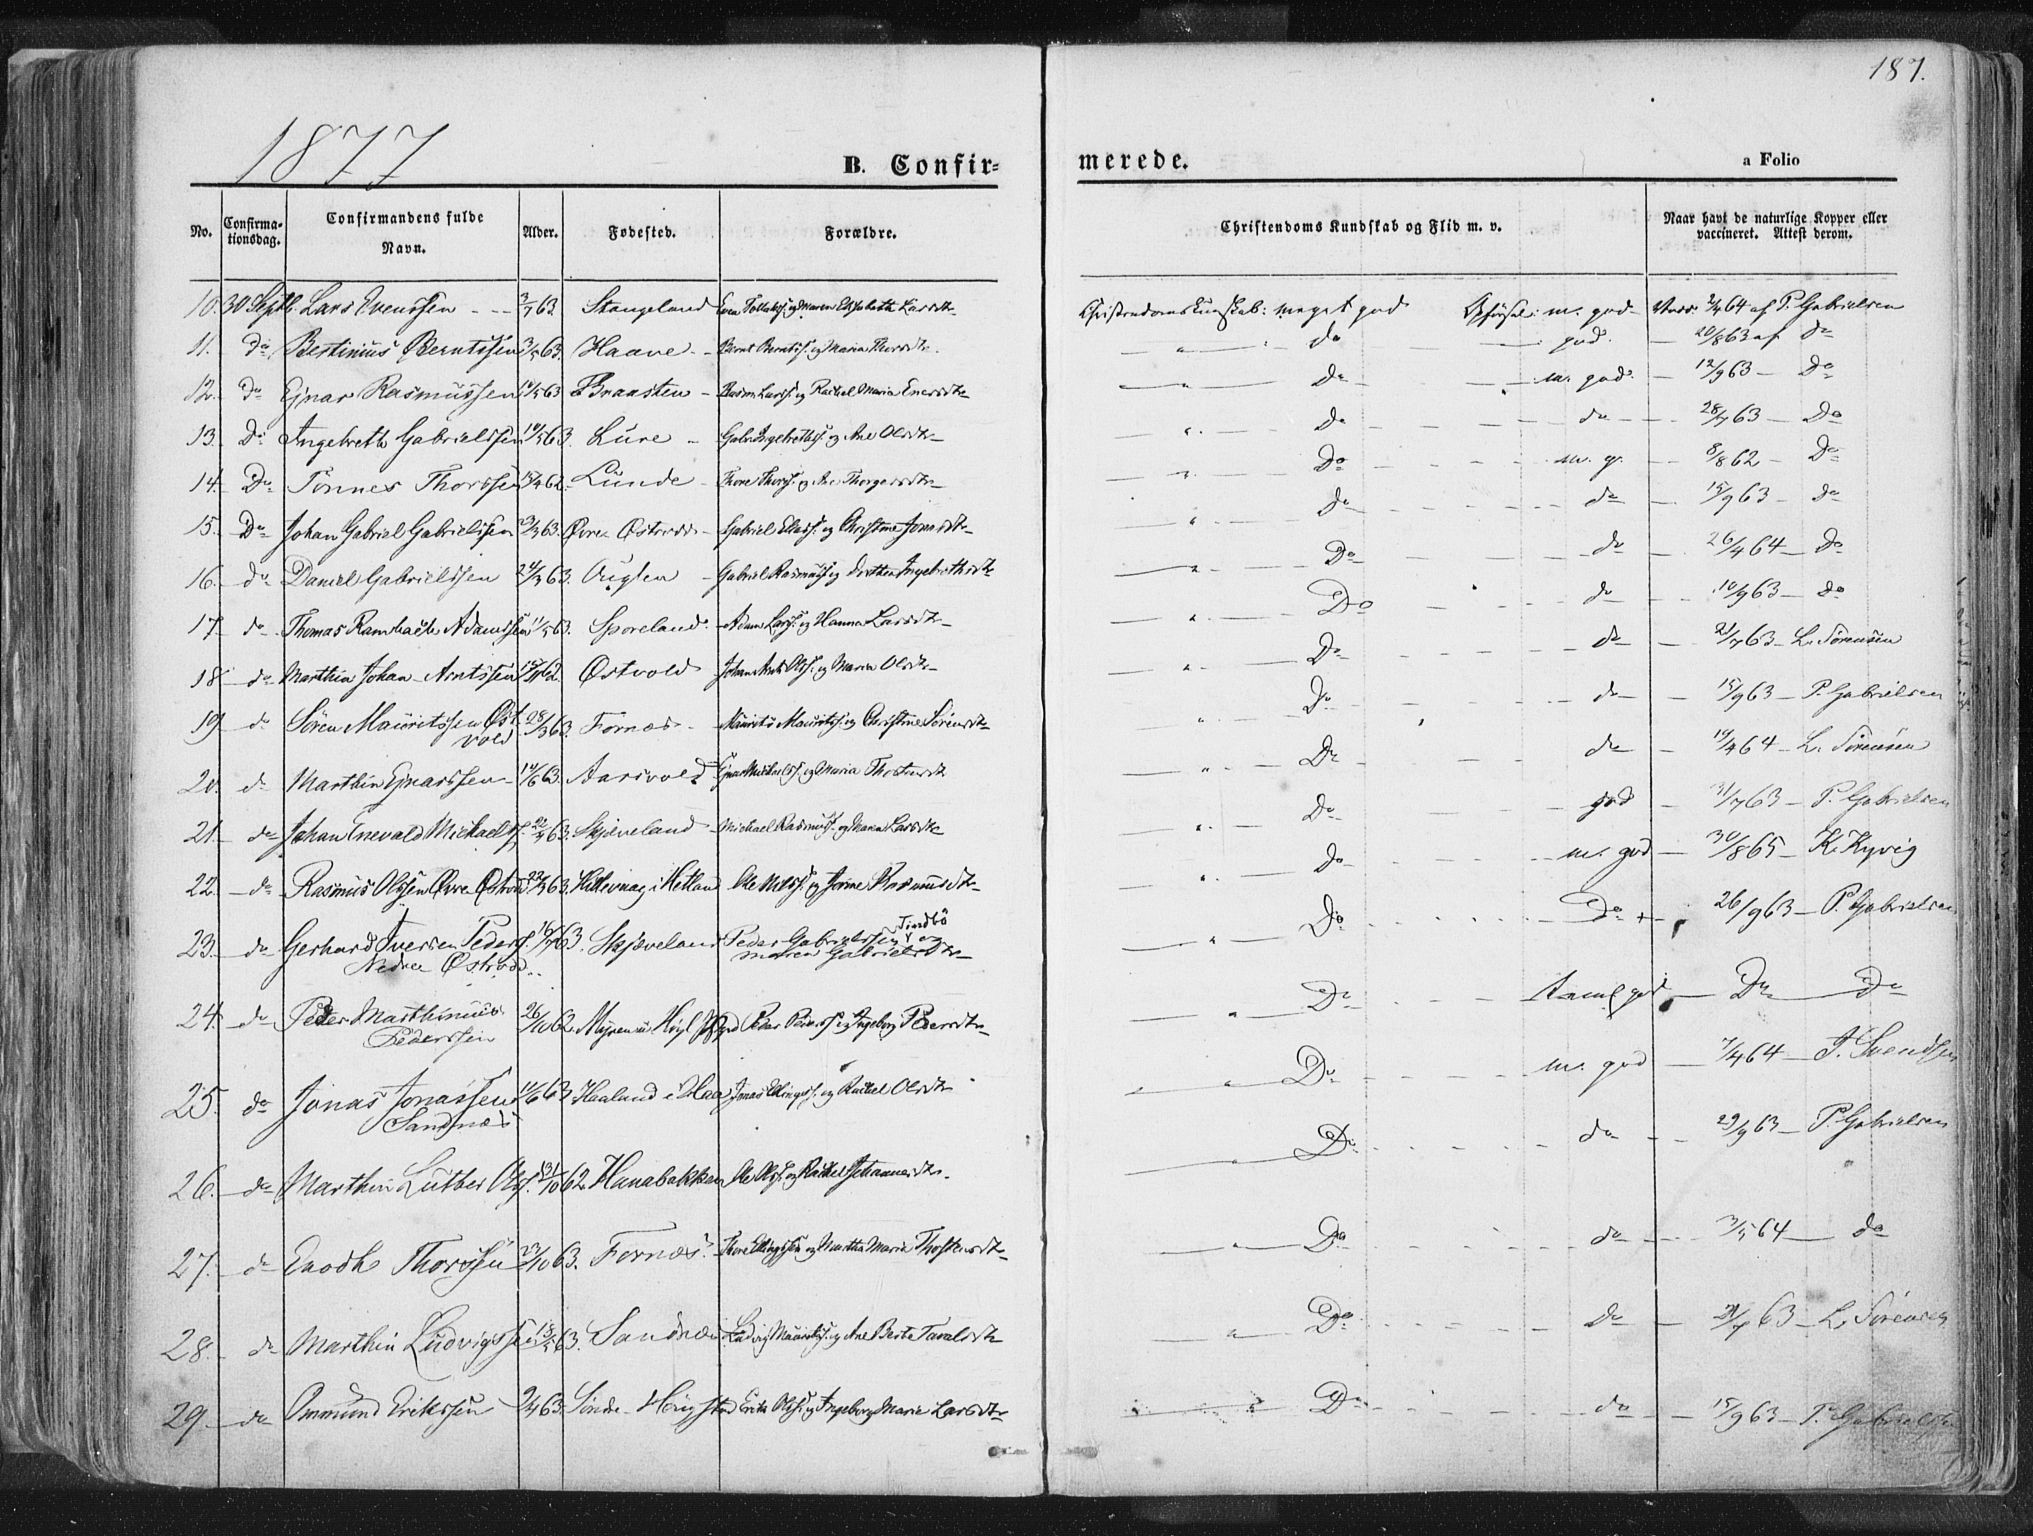 187.
1877
B. Confir= merede. a Folio
No. Confirma- tionsdag. Confirmandens fulde Navn. Alder. Fødested. Forældre. Christendoms Kundskab og Flid m. v. Naar havt de naturlige Kopper eller vaccineret. Attest derom.
10. 30 Septb. Lars Evenssen 63. Stangeland Even og Maren Elisabeth Larsdtr Christendomskunskab: meget god Opførsel: m. god 64 af P. Gabrielsen
11. do Bertinius Berntssen 63. Haave Bernt Berntss. og Maria do god. 20/8 63 af do
12. do Ejnar Rasmussen 63 Braasten Rasm. Larss. og Rachel Maria Do m. god. 12/9 63 Do
13. Do Ingebreth Gabrielssen 63. Lure Gabr. Ingebrethss. og Ane Olsdtr do do 28/7 63 Do
14. Do Tønnes Thorssen 62. Lunde Thore Thorss. og Ane Thorgersdtr Do m. g. 8/8 62 Do
15. Do Johan Gabriel Gabrielssen 63. Øvre Østraad Gabriel Eliass. og Christine Jonasdtr do do 15/9 63 do
16. do Daniel Gabrielssen 63. Auglen Gabriel Rasmuss. og Dorthea Ingebrethsdtr Do do 26/4 64 Do
17. do Thomas Rambach Adamssen 63. Sporeland Adam Larss. og Hanna Larsdtr Do do 10/9 63 do
18 do Marthin Johan Arntssen 62. Østvold Johan Arnt Olss. og Maria Olsdtr Do do 21/7 63 L. Sørensen
19 do Søren Mauritssen Øst- 28/3 63. Fornæs Maurits Mauritss. og Christine Sørensdtr Do do 15/9 63 P. Gabrielsen
vold
20. do Marthin Ejnarssen 63. Aarsvold Ejnar Michaelss. og Maria Thostensdtr Do do 19/4 64 L. Sørensen
21. do Johan Enevald Michaelss. 63. Skjæveland Michael Rasmuss. og Maria Larsdtr Do god 31/7 63 P. Gabrielsen
22. do Rasmus Olssen Øvre Østraad 63. Hillevaag i Hetland Ole Nilss. og Jorine Rasmusdtr do m. god 30/8 65 K. Kyvig
23. do Gerhard Iversen Peders. 63. Skjæveland Peder Gabrielssen Tjødbø og Do Do 26/9 63 P. Gabrielsen
Nedre Østraad Maren Gabrielsdtr
24. do Peder Marthinius 26/10 62. Myren i Høgl. Peder Pederss. og Ingeborg Pedersdtr Do god Do Do
Pederssen
25. do Jonas Jonassen 63. Haaland i Haa Jonas Ellingss. og Rachel Olsdtr Do m. god 7/4 64 Svendsen
Sandnæs
26. do Marthin Luther Olss. 31/10 62. Hanabakken Ole Olss. og Rachel Johannesdtr Do do 29/9 63 P. Gabrielsen
27. do Enoch Thorssen 63. Fornæs Thore Ellingssen og Martha Maria Thostensdtr Do do 3/5 64 do
28. do Marthin Ludvigssen 63. Sandnæs Ludvig Mauritss. og Ane Berte Taraldsdtr Do do 63 L. Sørensen
29. do Ommund Erikssen 63. Søndre Høigstad Erik Olss. og Ingeborg Marie Larsdtr Do do 15/9 63 P. Gabrielsen